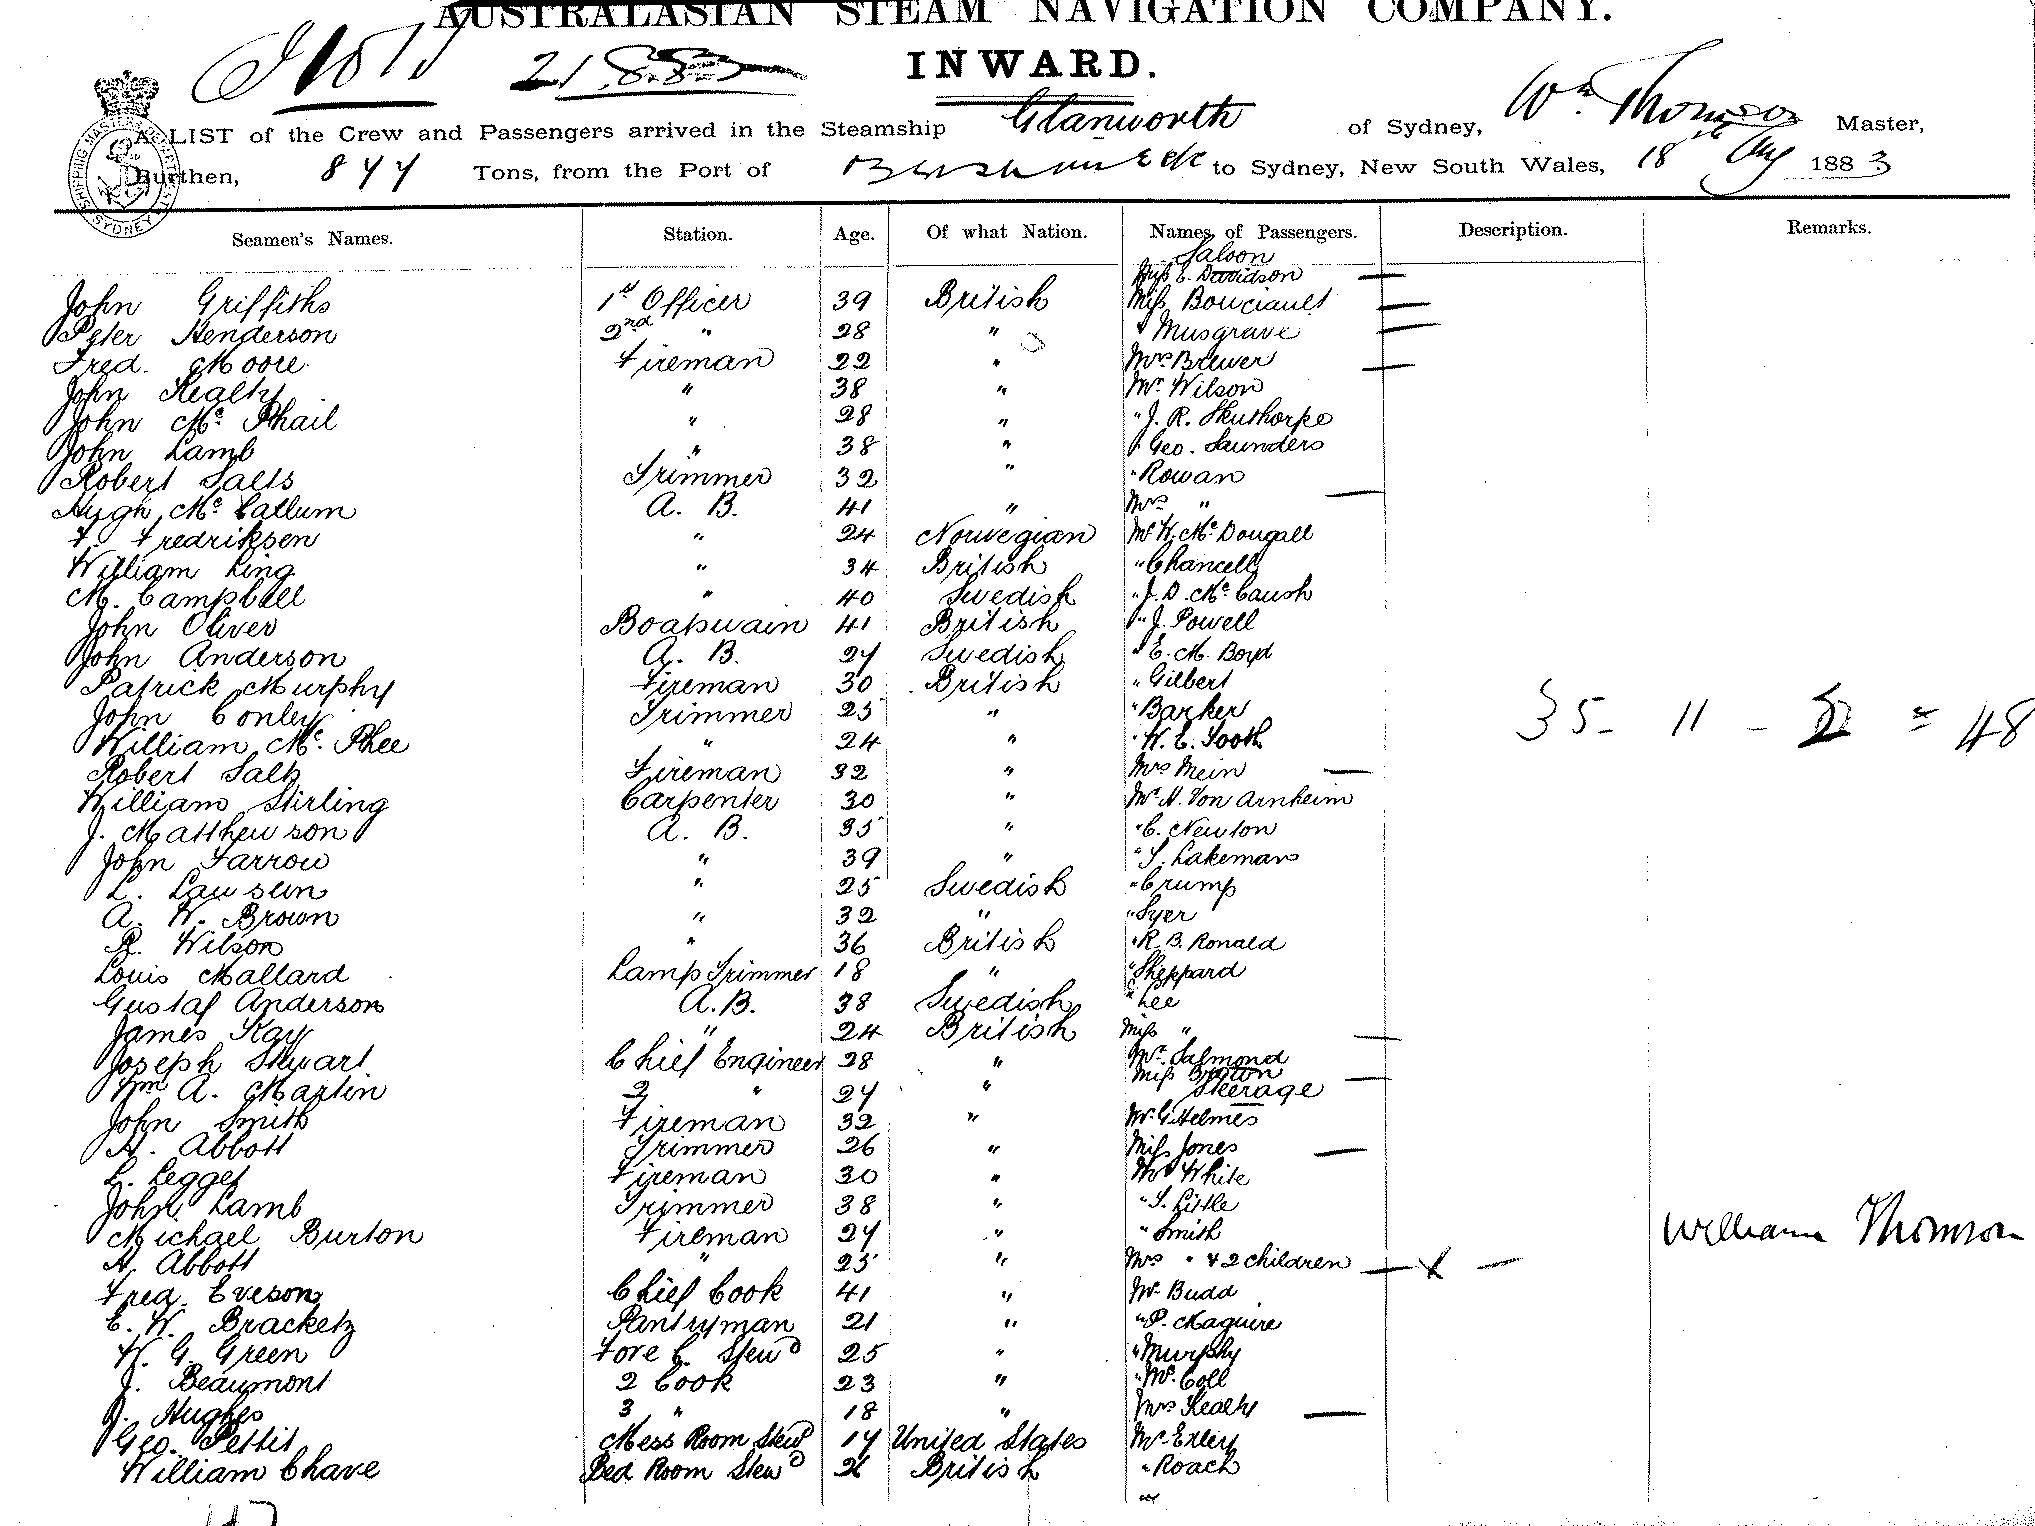 AUSTRALASIAN STEAM NAVIGATION COMPANY.
INWARD.
A LIST of the Crew and Passengers arrived in the Steamship Glanworth of Sydney, Wm Thomson Master,
Burthen, 877 Tons, from the Port of to Sydney, New South Wales, 18th Aug 1883
SHIPPING MASTER'S SYDNEY
Seamen's Names. Station. Age. Of what Nation. Names of Passengers. Description. Remarks.
Saloon
Miss E. Davidson
John Griffiths 1st Officer 39 British Miss Bouciault
Peter Henderson 2nd " 28 " " Musgrave
Fred. Moore Fireman 22 " Mrs Brewer
John Kealty " 38 " Mr. Wilson
John Mc Phail " 28 " " J. R. Skuthorpe
John Lamb " 38 " " Geo. Saunders
Robert Salts Trimmer 32 " " Rowan
Hugh Mc Callum A. B. 41 " Mrs "
F. Fredriksen " 24 Norwegian Mr W. Mc Dougall
William King " 34 British " Chancell
M. Campbell " 40 Swedish " J. D. Mc Caush
John Oliver Boatswain 41 British " J. Powell
John Anderson A. B. 27 Swedish " E. M. Boyd
Patrick Murphy Fireman 30 British " Gilbert
John Conley Trimmer 25 " " Barker
William Mc. Phee " 24 " " W. E. Tooth
35 - 11 - 2 = 48
Robert Salts Fireman 32 " Mrs Mein
William Stirling Carpenter 30 " Mr. H. Von Arnheim
J. Matthewson A. B. 35 " " C. Newton
John Farrow " 39 " " T. Lakeman
L. " 25 Swedish " Crump
A. W. Brown " 32 " " Syer
R. Wilson " 36 British " R. B. Ronald
Louis Mallard Lamp Trimmer 18 " " Sheppard
Gustaf Anderson A.B. 38 Swedish " Lee
James Kay " 24 British Miss "
Joseph Stewart Chief Engineer 28 " Mr. Salmond
Miss
Wm A. Martin 2 " 27 " Steerage
John Smith Fireman 32 " Mr. G. Helmes
H. Abbott Trimmer 26 " Miss Jones
L. Legget Fireman 30 " Mr White
John Lamb Trimmer 38 " " T. Little
Michael Burton Fireman 27 " " Smith
William Thomson
H. Abbott " 25 " Mrs " & 2 children
Fred. Eveson Chief Cook 41 " Mr Budd
C. W. Bracketz Pantryman 21 " " P. Maguire
W. G. Green Fore C. Stewd 25 " " Murphy
J. Beaumont 2 Cook 23 " " Mc Coll
J. Hughes 3 " 18 " Mrs Kealty
Geo. Pettit Mess Room Stewd 17 United States Mr Exley
William Chave Bed Room Stewd 26 British " Roach